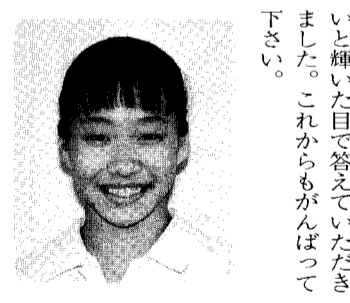 いと輝いた目で答えていただき
ました。これからもがんばって
下さい。